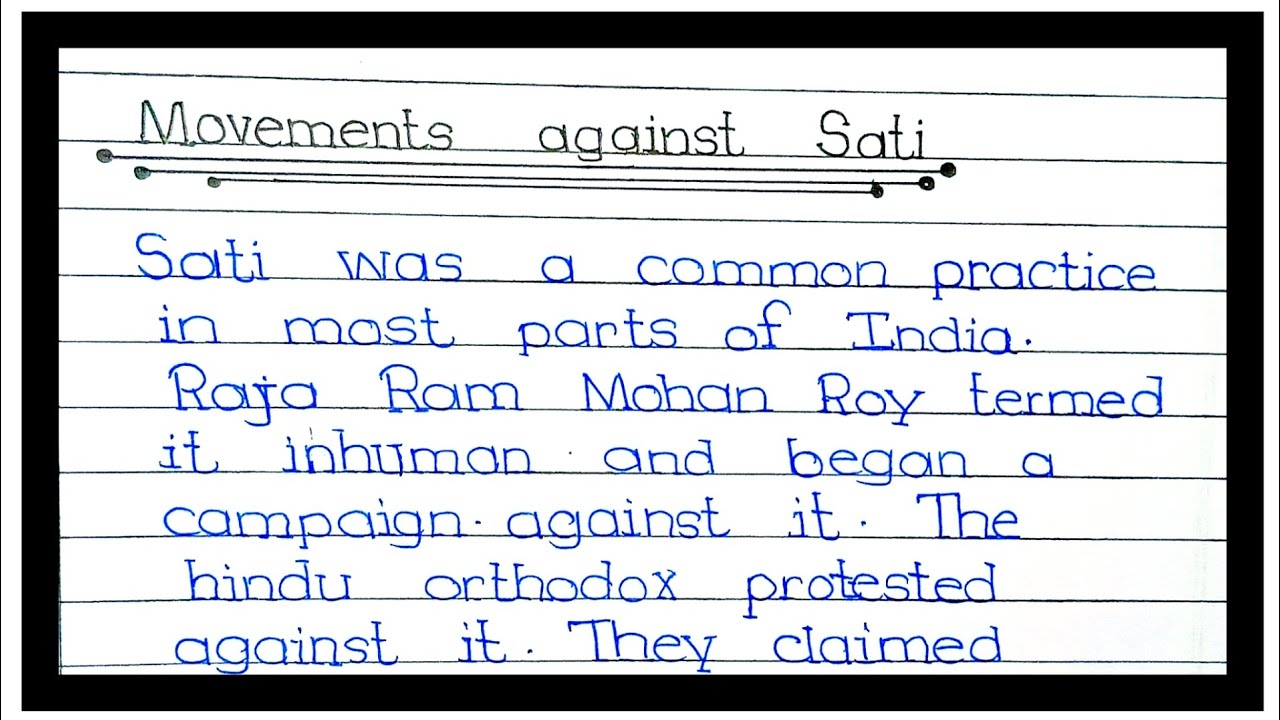 Movements against Sati
Sati was a common practice
in most parts of India.
Raja Ram Mohan Roy termed
it inhuman and began a
campaign. against it. The
hindu orthodox protested
against it. They claimed